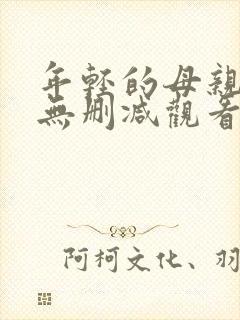 年轻的母親
無刪减觀看
阿柯文化、羽